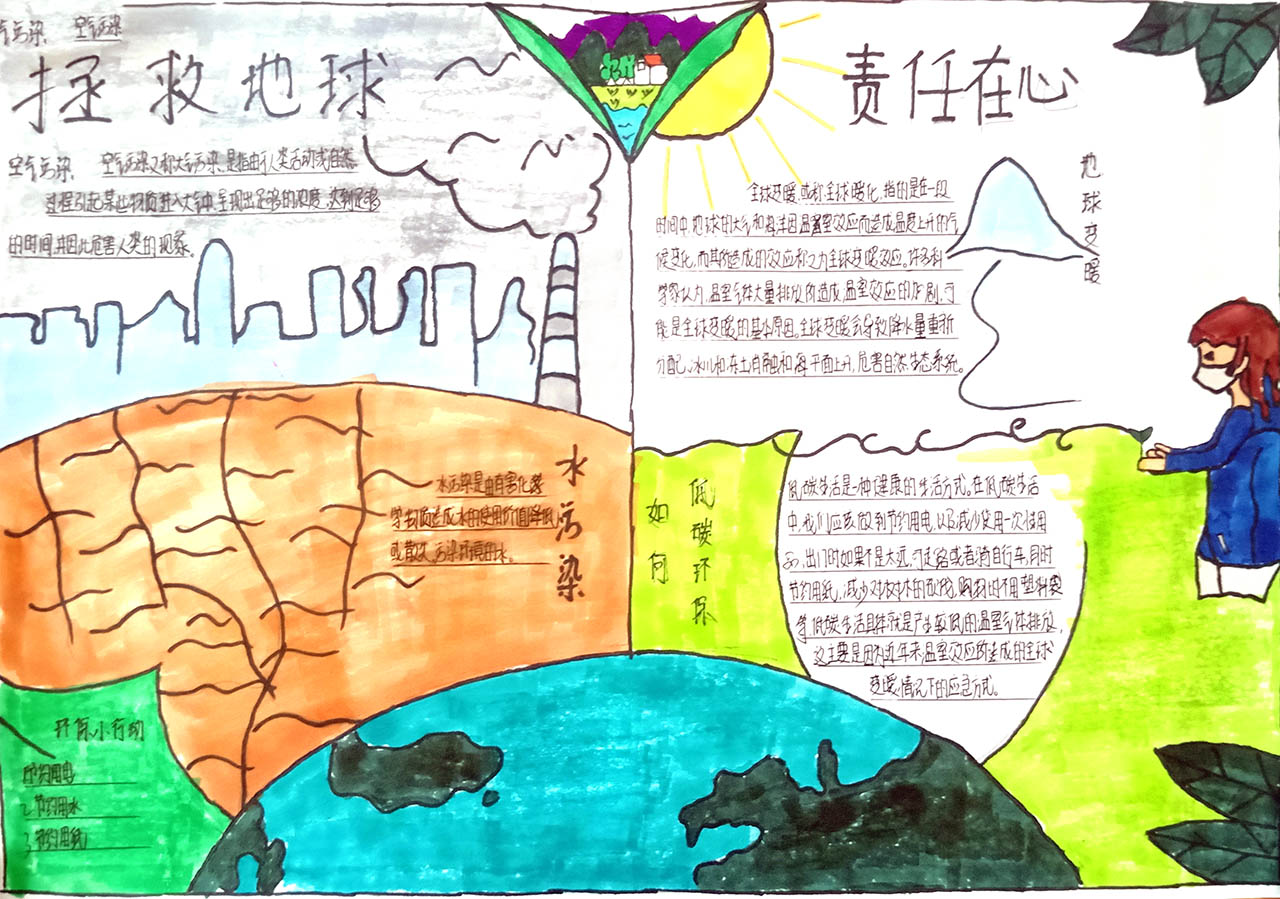 空气污染
拯救地球
空气污染 空气污染又称大气污染,是指由于人类活动或自然
过程引起某些物质进入大气中,呈现出足够的浓度,达到足够
的时间,并因此危害人类的现象。
水污染
水污染是由有害化学
学物质造成水的使用价值降低
或散失,污染环境的水。
环保小行动
1.节约用电
2.节约用水
3.节约用纸
责任在心
地球变暖
全球变暖,或称全球暖化,指的是在一段
时间中,地球的大气和海洋因温室效应而造成温度上升的气
候变化,而其所造成的效应称之为全球变暖效应。许多科
学家认为,温室气体大量排放所造成温室效应的加剧,可
能是全球变暖的基本原因。全球变暖会导致降水量重新
分配,冰川和冻土消融和海平面上升,危害自然生态系统。
如何
低碳环保
低碳生活是一种健康的生活方式。在低碳生活
中,我们应该做到节约用电,以及减少使用一次性用
品,出门时如果不是太远,可走路或者骑自行车,同时
节约用纸,减少对树木的砍伐,购物时不用塑料袋
等,低碳生活具体就是产生较低的温室气体排放,
这主要是因为近年来温室效应所造成的全球
变暖,情况下的应急方式。